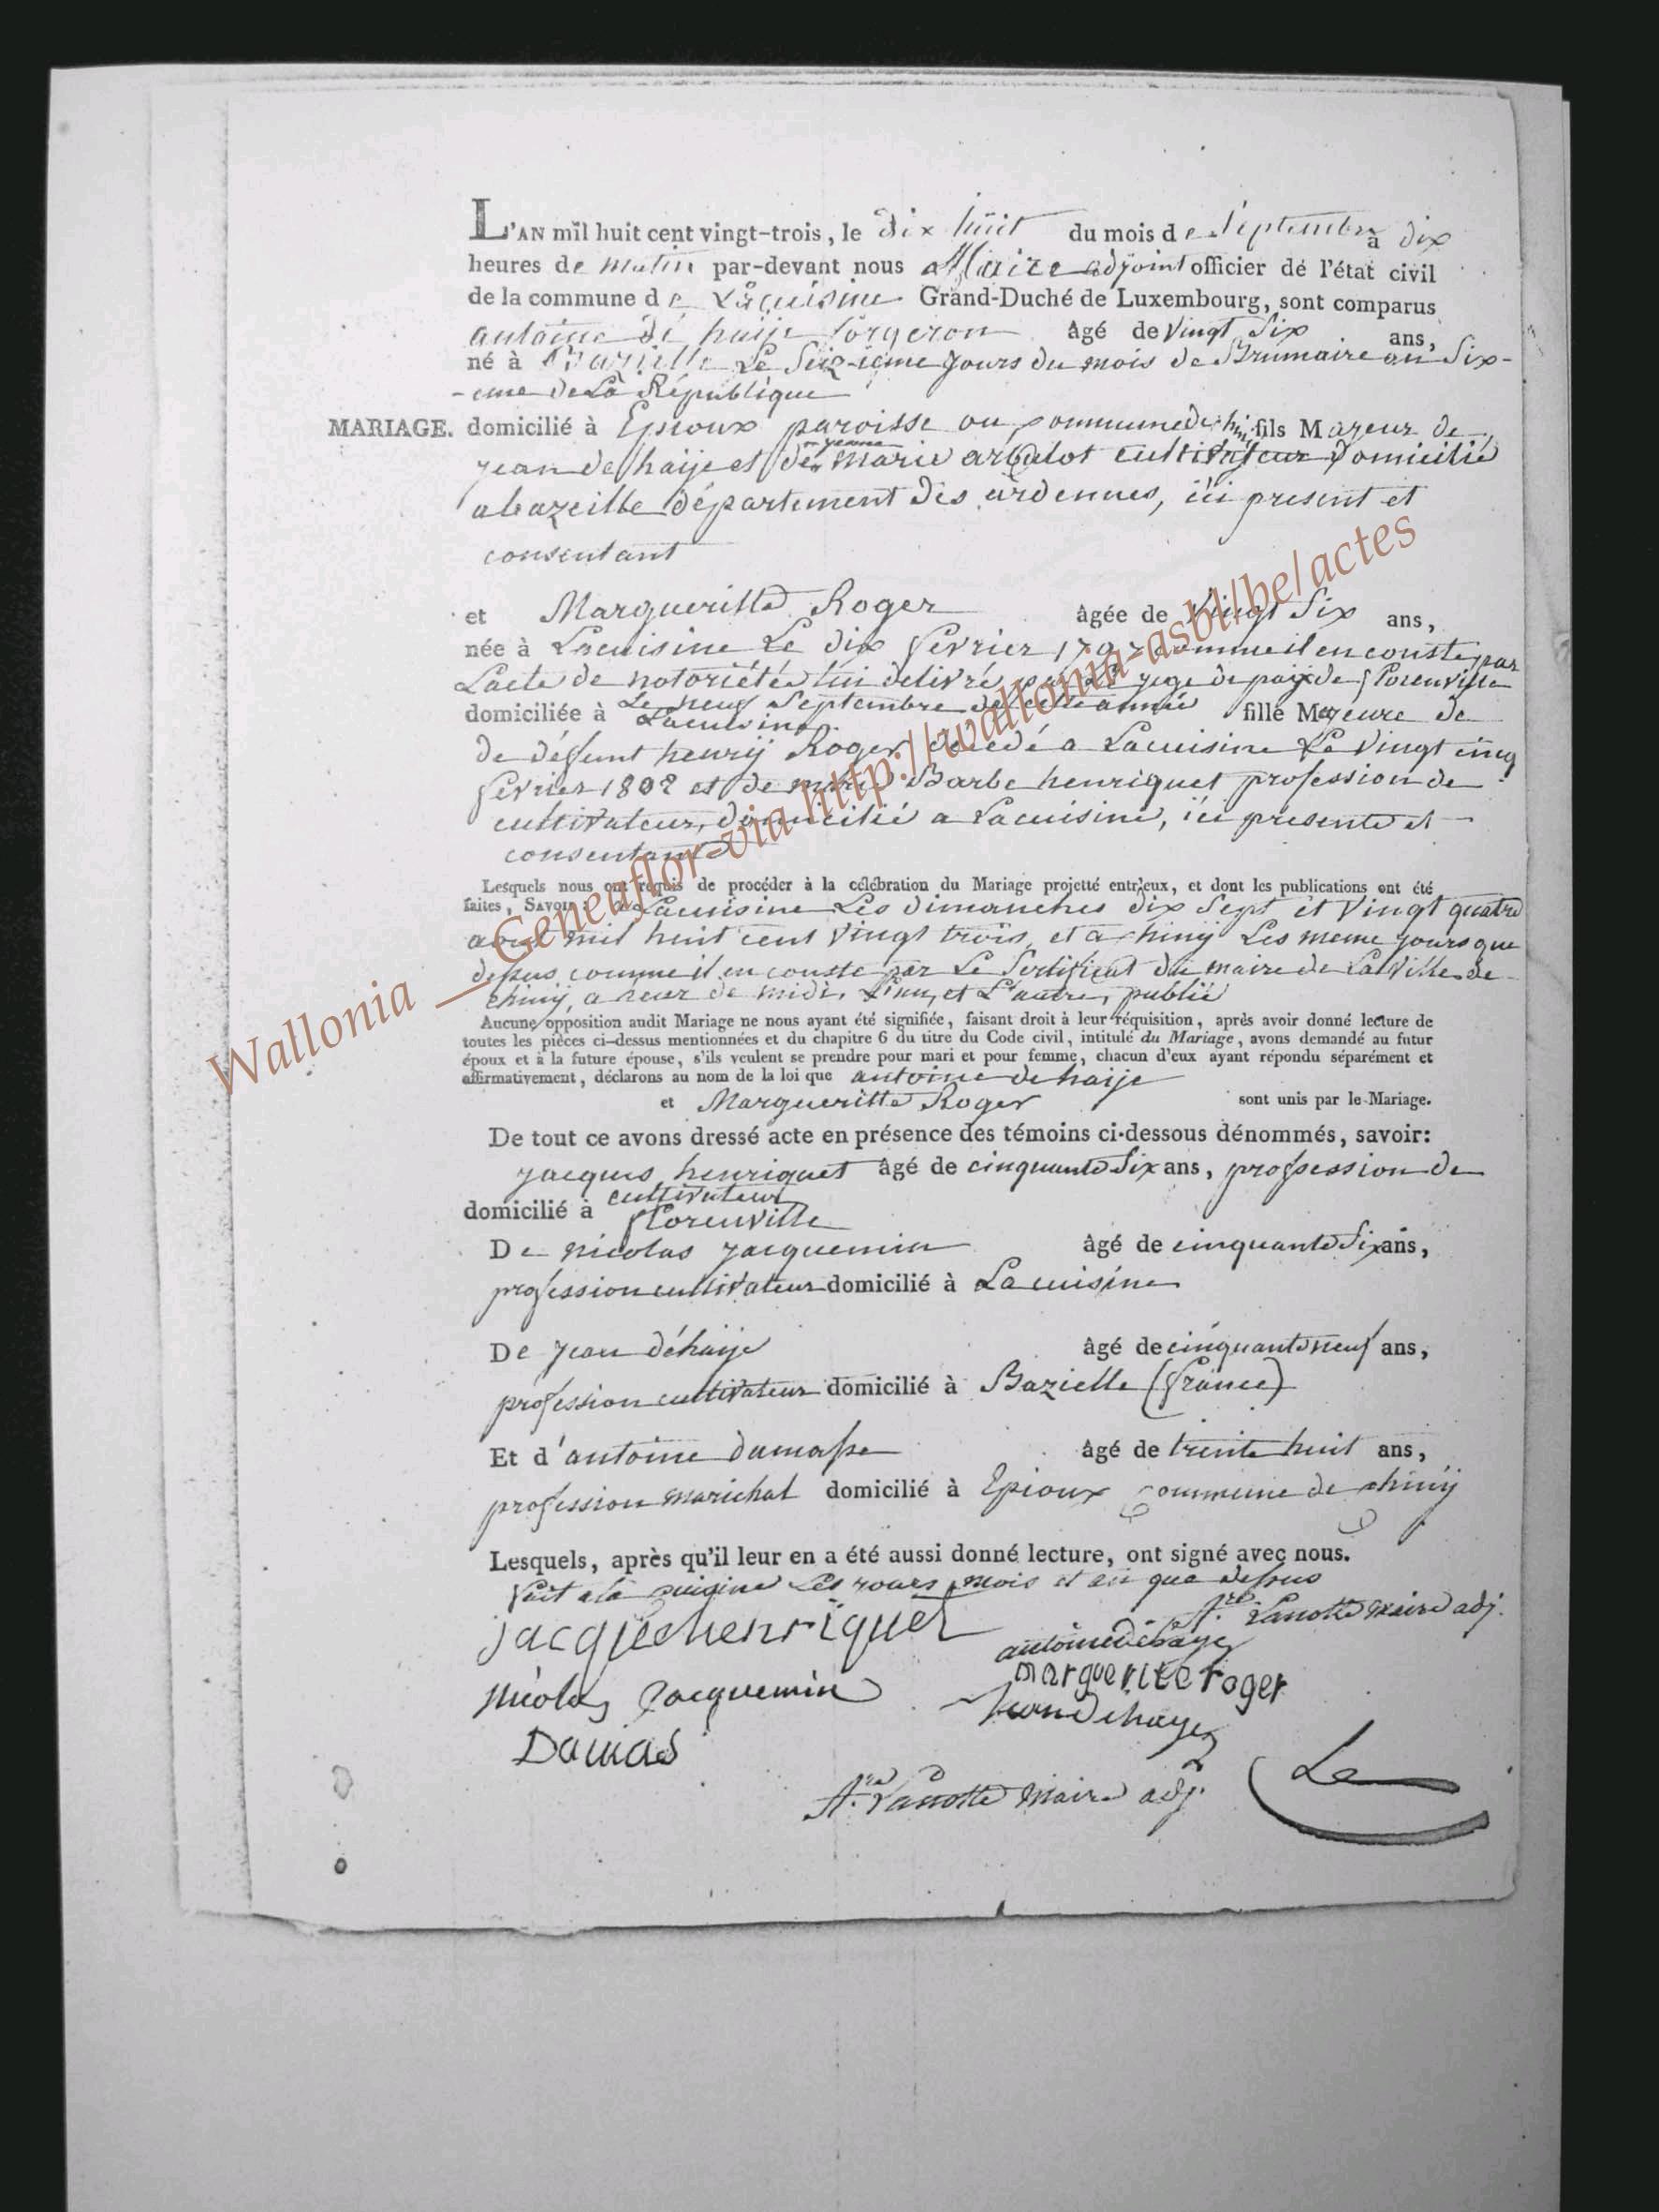 L'AN mil huit cent vingt-trois, le dix huit du mois de Septembre à dix
heures de matin par-devant nous Maire adjoint officier dé l'état civil
de la commune de Lacuisine Grand-Duché de Luxembourg, sont comparus
antoine de haije forgeron âgé de vingt Six ans,
né à Bazeille Le Seizieme jours du mois de Brumaire an Six-
-eme de La République
MARIAGE. domicilié à Epioux paroisse ou commune de chiny fils Majeur de
jean de haije et de marie arbulot cultivateur domicilié
a bazeille département des ardennes, ici present et
consentant
et Margueritte Roger âgée de Vingt Six ans,
née à Lacuisine Le dix fevrier 1797 comme il en conste par
Lacte de notoriétée lui delivré par Le juge de paix de florenville
Le neuf Septembre de cette année
domiciliée à Lacuisine fille Majeure de
de défunt henrij Roger décédé a Lacuisine Le Vingt cinq
fevrier 1808 et de marie Barbe henriquet profession de
cultivateur, domicilié a Lacuisine, ici presente et
consentante
Lesquels nous ont requis de procéder à la célébration du Mariage projetté entr'eux, et dont les publications ont été
faites, SAVOIR: a Lacuisine Les dimanches dix Sept et Vingt quatre
aout mil huit cent Vingt trois, et a chinij Les meme jours que
desus comme il en conste par Le Sertificat du maire de La Ville de
chinij, a heur de midi, L'un, et L'autre, publié
Aucune opposition audit Mariage ne nous ayant été signifiée, faisant droit à leur réquisition, après avoir donné lecture de
toutes les pièces ci-dessus mentionnées et du chapitre 6 du titre du Code civil, intitulé du Mariage, avons demandé au futur
époux et à la future épouse, s'ils veulent se prendre pour mari et pour femme, chacun d'eux ayant répondu séparément et
affirmativement, déclarons au nom de la loi que antoine de haije
et Margueritte Roger sont unis par le Mariage.
De tout ce avons dressé acte en présence des témoins ci-dessous dénommés, savoir:
jacques henriquet âgé de cinquante Six ans, profession de
cultivateur
domicilié à florenville
De nicolas jacquemin âgé de cinquante Six ans,
profession cultivateur domicilié à Lacuisine
De jean déhaije âgé de cinquante neuf ans,
profession cultivateur domicilié à Bazielle (france)
Et d'antoine damasse âgé de trente huit ans,
profession marichal domicilié à Epioux commune de chinij
Lesquels, après qu'il leur en a été aussi donné lecture, ont signé avec nous.
fait a la cuisine Les jours mois et an que dessus
A.re Lanotte maire adj.
jacque henriquet
antoine dehaye
marguerite roger
nicolas jacquemin
jean dehaye
Damas
A.re Lanotte maire adj.
Le
Wallonia __ Geneaflor via http://wallonia-asbl/be/actes